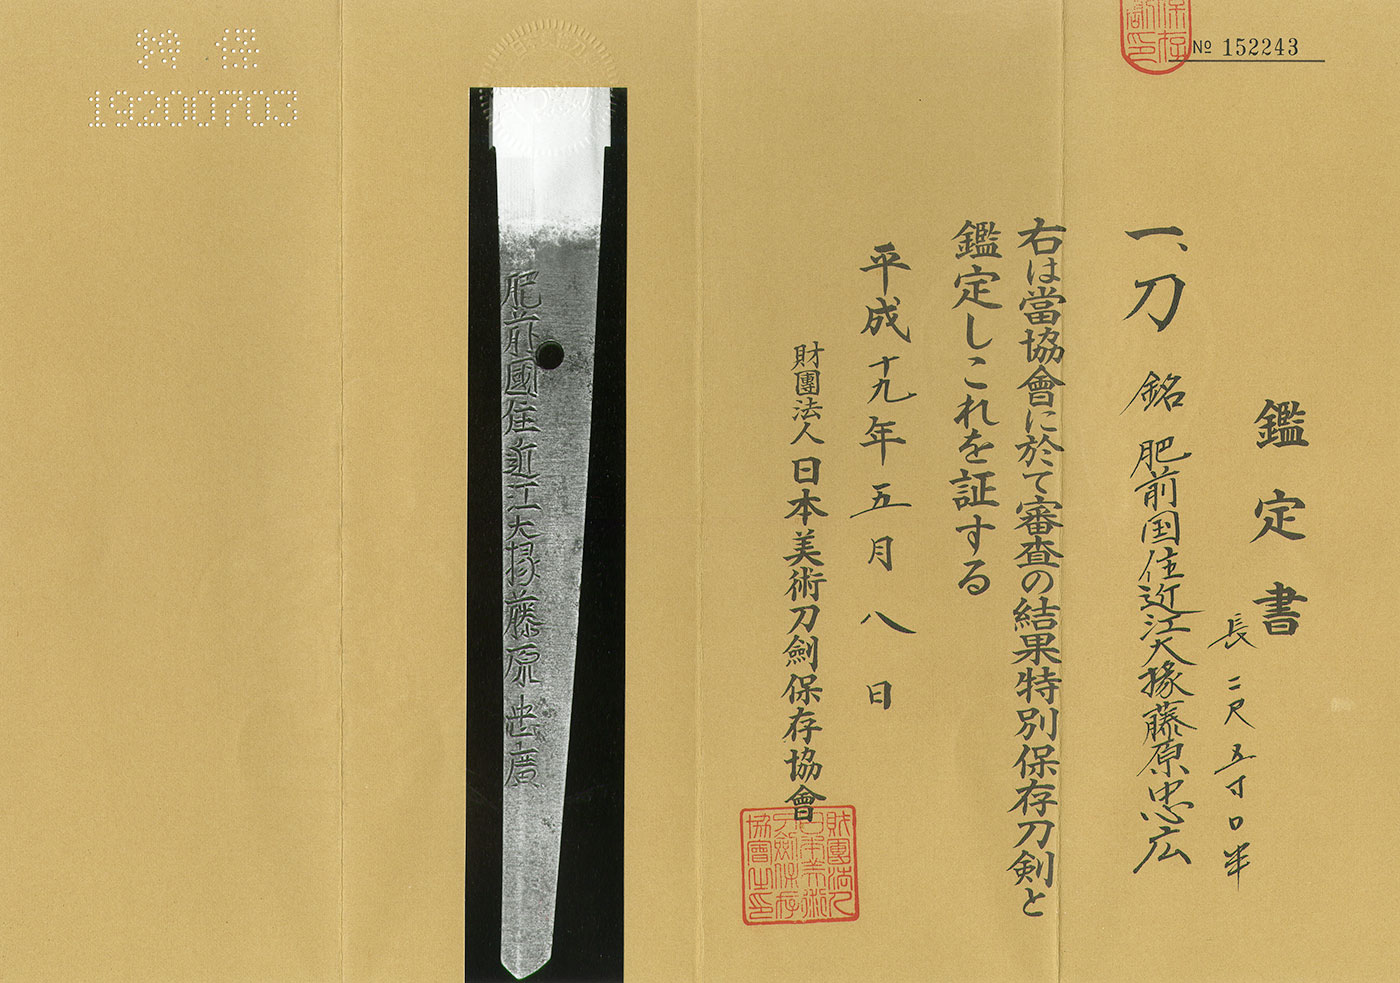 № 152243
鑑定書
一、刀 銘 肥前国住近江大掾藤原忠広
長 二尺五寸0半
右は當協會に於て審査の結果特別保存刀剣と
鑑定しこれを証する
平成十九年五月八日
財團法人日本美術刀劍保存協會
財團法人日本美術刀劍保存協會之印
肥前國住近江大掾藤原忠廣
特保
19200703